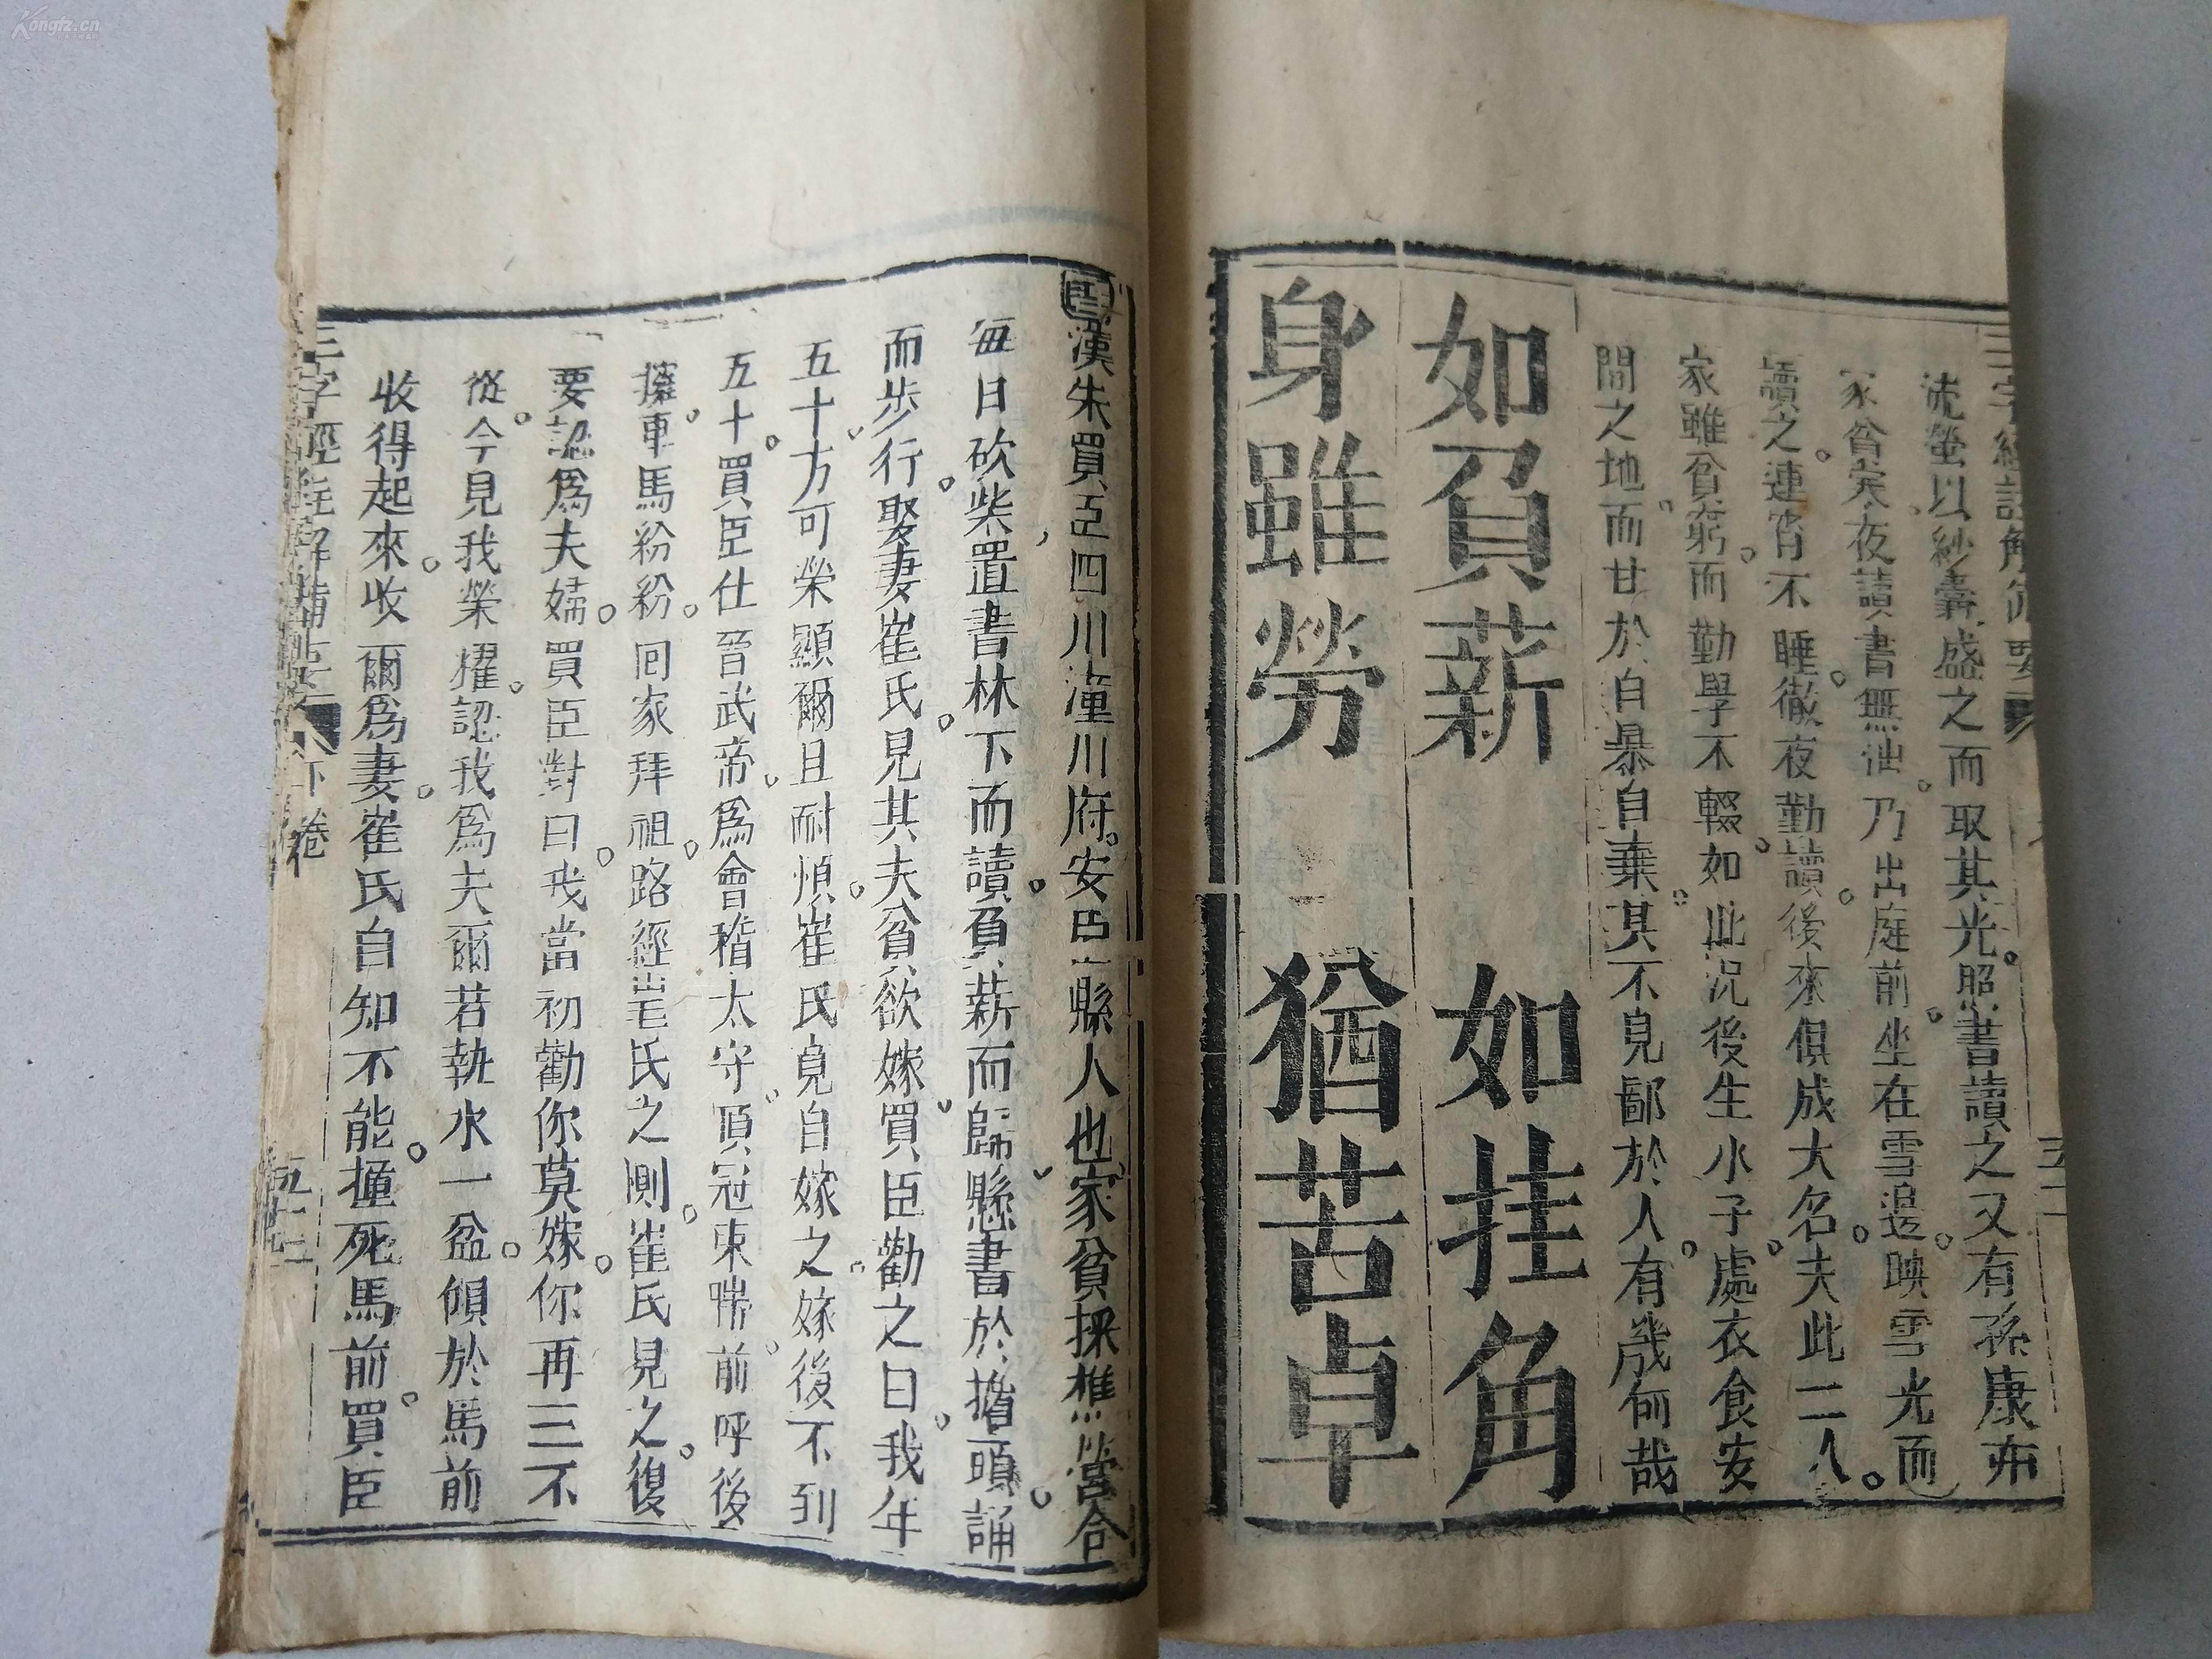 三字經註解備要
流螢以紗囊盛之而取其光照書讀之又有孫康亦
家貧炭夜讀書無油乃出庭前坐在雪邊映雪光而
讀之連宵不睡徹夜勤讀後來俱成大名夫此二人
家雖貧窮而勤學不輟如此況後生小子處衣食安
閒之地而甘於自暴自棄其不見鄙於人有幾何哉
如負薪 如挂角
身雖勞 猶苦卓
漢朱買臣四川潼川府安邑縣人也家貧採樵營合
每日砍柴置書林下而讀負薪而歸懸書於擔頭誦
而步行娶妻崔氏見其夫貧欲嫁買臣勸之曰我年
五十方可榮顯爾且耐煩崔氏竟自嫁之嫁後不到
五十買臣仕晉武帝為會稽太守頂冠束帶前呼後
擁車馬紛紛回家拜祖路經崔氏之側崔氏見之復
要認為夫婦買臣對曰我當初勸你莫嫁你再三不
從今見我榮耀認我為夫爾若執水一盆傾於馬前
收得起來收爾為妻崔氏自知不能撞死馬前買臣
三字經註解備要 下卷 五十二
Kongfz.cn